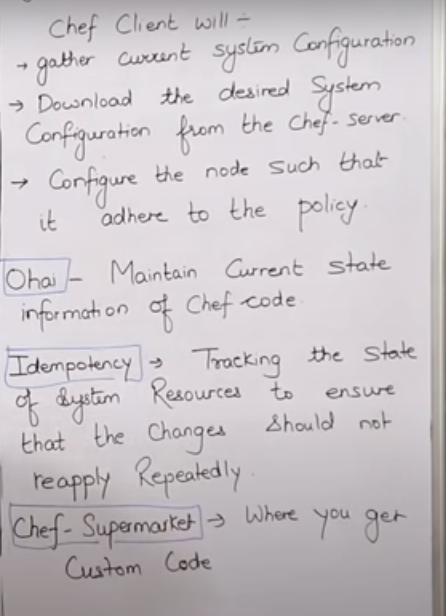 Chef Client will ÷
→ gather current system Configuration
→ Download the desired System
Configuration from the Chef-server.
→ Configure the node such that
it adhere to the policy.
Ohai - Maintain Current state
information of Chef code.
Idempotency → Tracking the State
of System Resources to ensure
that the Changes should not
reapply Repeatedly.
Chef-Supermarket → Where you get
Custom Code